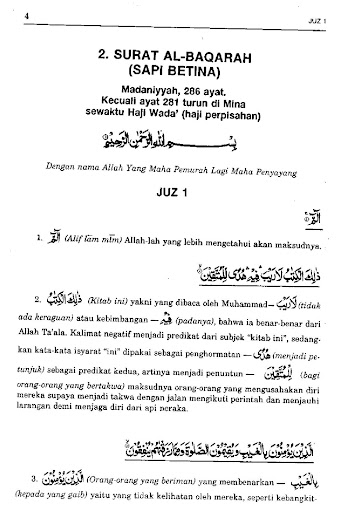 4
JUZ 1
2. SURAT AL-BAQARAH
(SAPI BETINA)
Madaniyyah, 286 ayat.
Kecuali ayat 281 turun di Mina
sewaktu Haji Wada' (haji perpisahan)
بِسْمِ اللهِ الرَّحْمٰنِ الرَّحِيْمِ
Dengan nama Allah Yang Maha Pemurah Lagi Maha Penyayang
JUZ 1
الٓمّٓ
1. الٓمّٓ (Alif lām mīm) Allah-lah yang lebih mengetahui akan maksudnya.
ذٰلِكَ الْكِتٰبُ لَا رَيْبَ فِيْهِ هُدًى لِّلْمُتَّقِيْنَ
2. ذٰلِكَ الْكِتٰبُ (Kitab ini) yakni yang dibaca oleh Muhammad— لَا رَيْبَ (tidak
ada keraguan) atau kebimbangan — فِيْهِ (padanya), bahwa ia benar-benar dari
Allah Ta'ala. Kalimat negatif menjadi predikat dari subjek "kitab ini", sedang-
kan kata-kata isyarat "ini" dipakai sebagai penghormatan — هُدًى (menjadi pe-
tunjuk) sebagai predikat kedua, artinya menjadi penuntun — لِّلْمُتَّقِيْنَ (bagi
orang-orang yang bertakwa) maksudnya orang-orang yang mengusahakan diri
mereka supaya menjadi takwa dengan jalan mengikuti perintah dan menjauhi
larangan demi menjaga diri dari api neraka.
الَّذِيْنَ يُؤْمِنُوْنَ بِالْغَيْبِ وَيُقِيْمُوْنَ الصَّلٰوةَ وَمِمَّا رَزَقْنٰهُمْ يُنْفِقُوْنَ
3. الَّذِيْنَ يُؤْمِنُوْنَ (Orang-orang yang beriman) yang membenarkan — بِالْغَيْبِ
(kepada yang gaib) yaitu yang tidak kelihatan oleh mereka, seperti kebangkit-